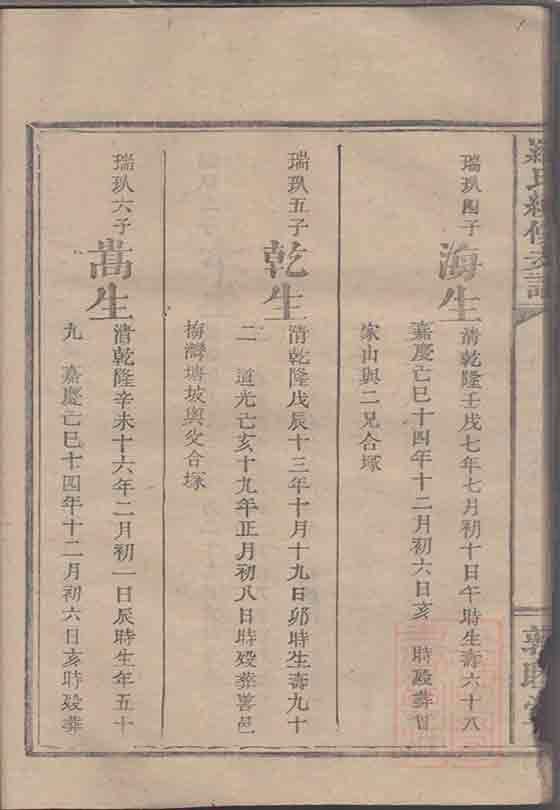 羅氏續修支譜
敦睦堂
瑞玖四子
海生
清乾隆壬戌七年七月初十日午時生壽六十八
嘉慶亡巳十四年十二月初六日亥 時歿葬甘
家山與二兄合塚
瑞玖五子
乾生
清乾隆戊辰十三年十月十九日卯時生壽九十
二 道光亡亥十九年正月初八日時歿葬善邑
梅灣塘坡與父合塚
瑞玖六子
嵩生
清乾隆辛未十六年二月初一日辰時生年五十
九 嘉慶亡巳十四年十二月初六日亥時歿葬